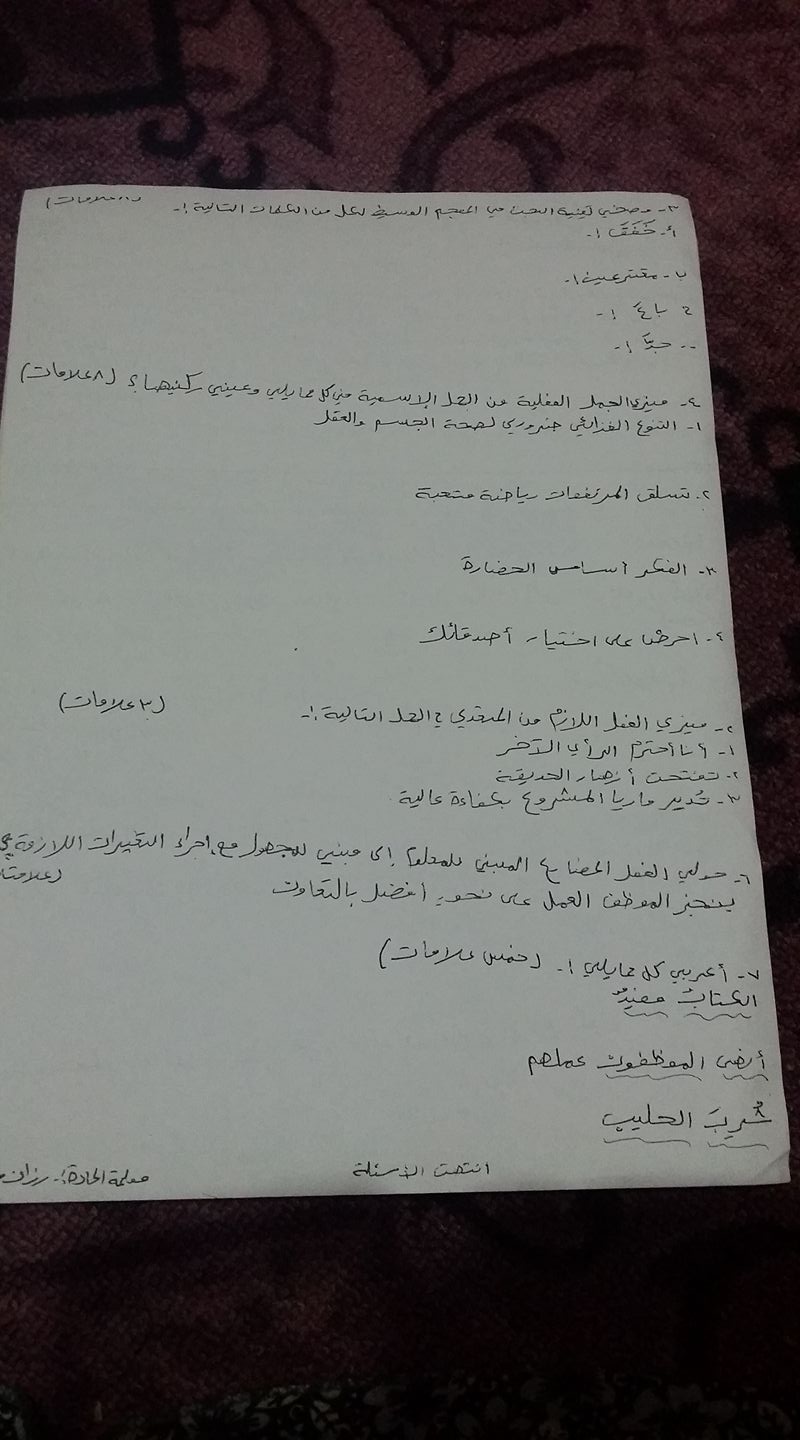 ٣- وضحي كيفية البحث في المعجم الوسيط لكل من الكلمات التالية :- (٨ علامات)
أ- خَفَقَ :-
ب- مقترعين :-
ج باعَ :-
د- جدّ :-
٤- ميزي الجمل الفعلية من الجمل الإسمية في كل مما يلي وعيني ركنيها ؟ (٨ علامات)
١- التنوع الغذائي ضروري لصحة الجسم والعقل
٢- تسلق المرتفعات رياضة متعبة
٣- الفكر أساس الحضارة
٤- احرص على اختيار أصدقائك
ميزي الفعل اللازم من المتعدي في الجمل التالية :- (٣ علامات)
١- أنا أحترم الرأي الآخر
٢- تفتحت أزهار الحديقة
٣- تُدير ماريا المشروع بكفاءة عالية
٦- حولي الفعل المضارع المبني للمعلوم إلى مبني للمجهول مع اجراء التغيرات اللازمة (علامتا
ينجز الموظف العمل على نحوٍ أفضل بالتعاون
٧- أعربي كل مما يلي :- (خمس علامات)
الكتابُ مفيدٌ
أنهى الموظفون عملهم
شُرِبَ الحليب
انتهت الأسئلة
معلمة المادة :- رزان